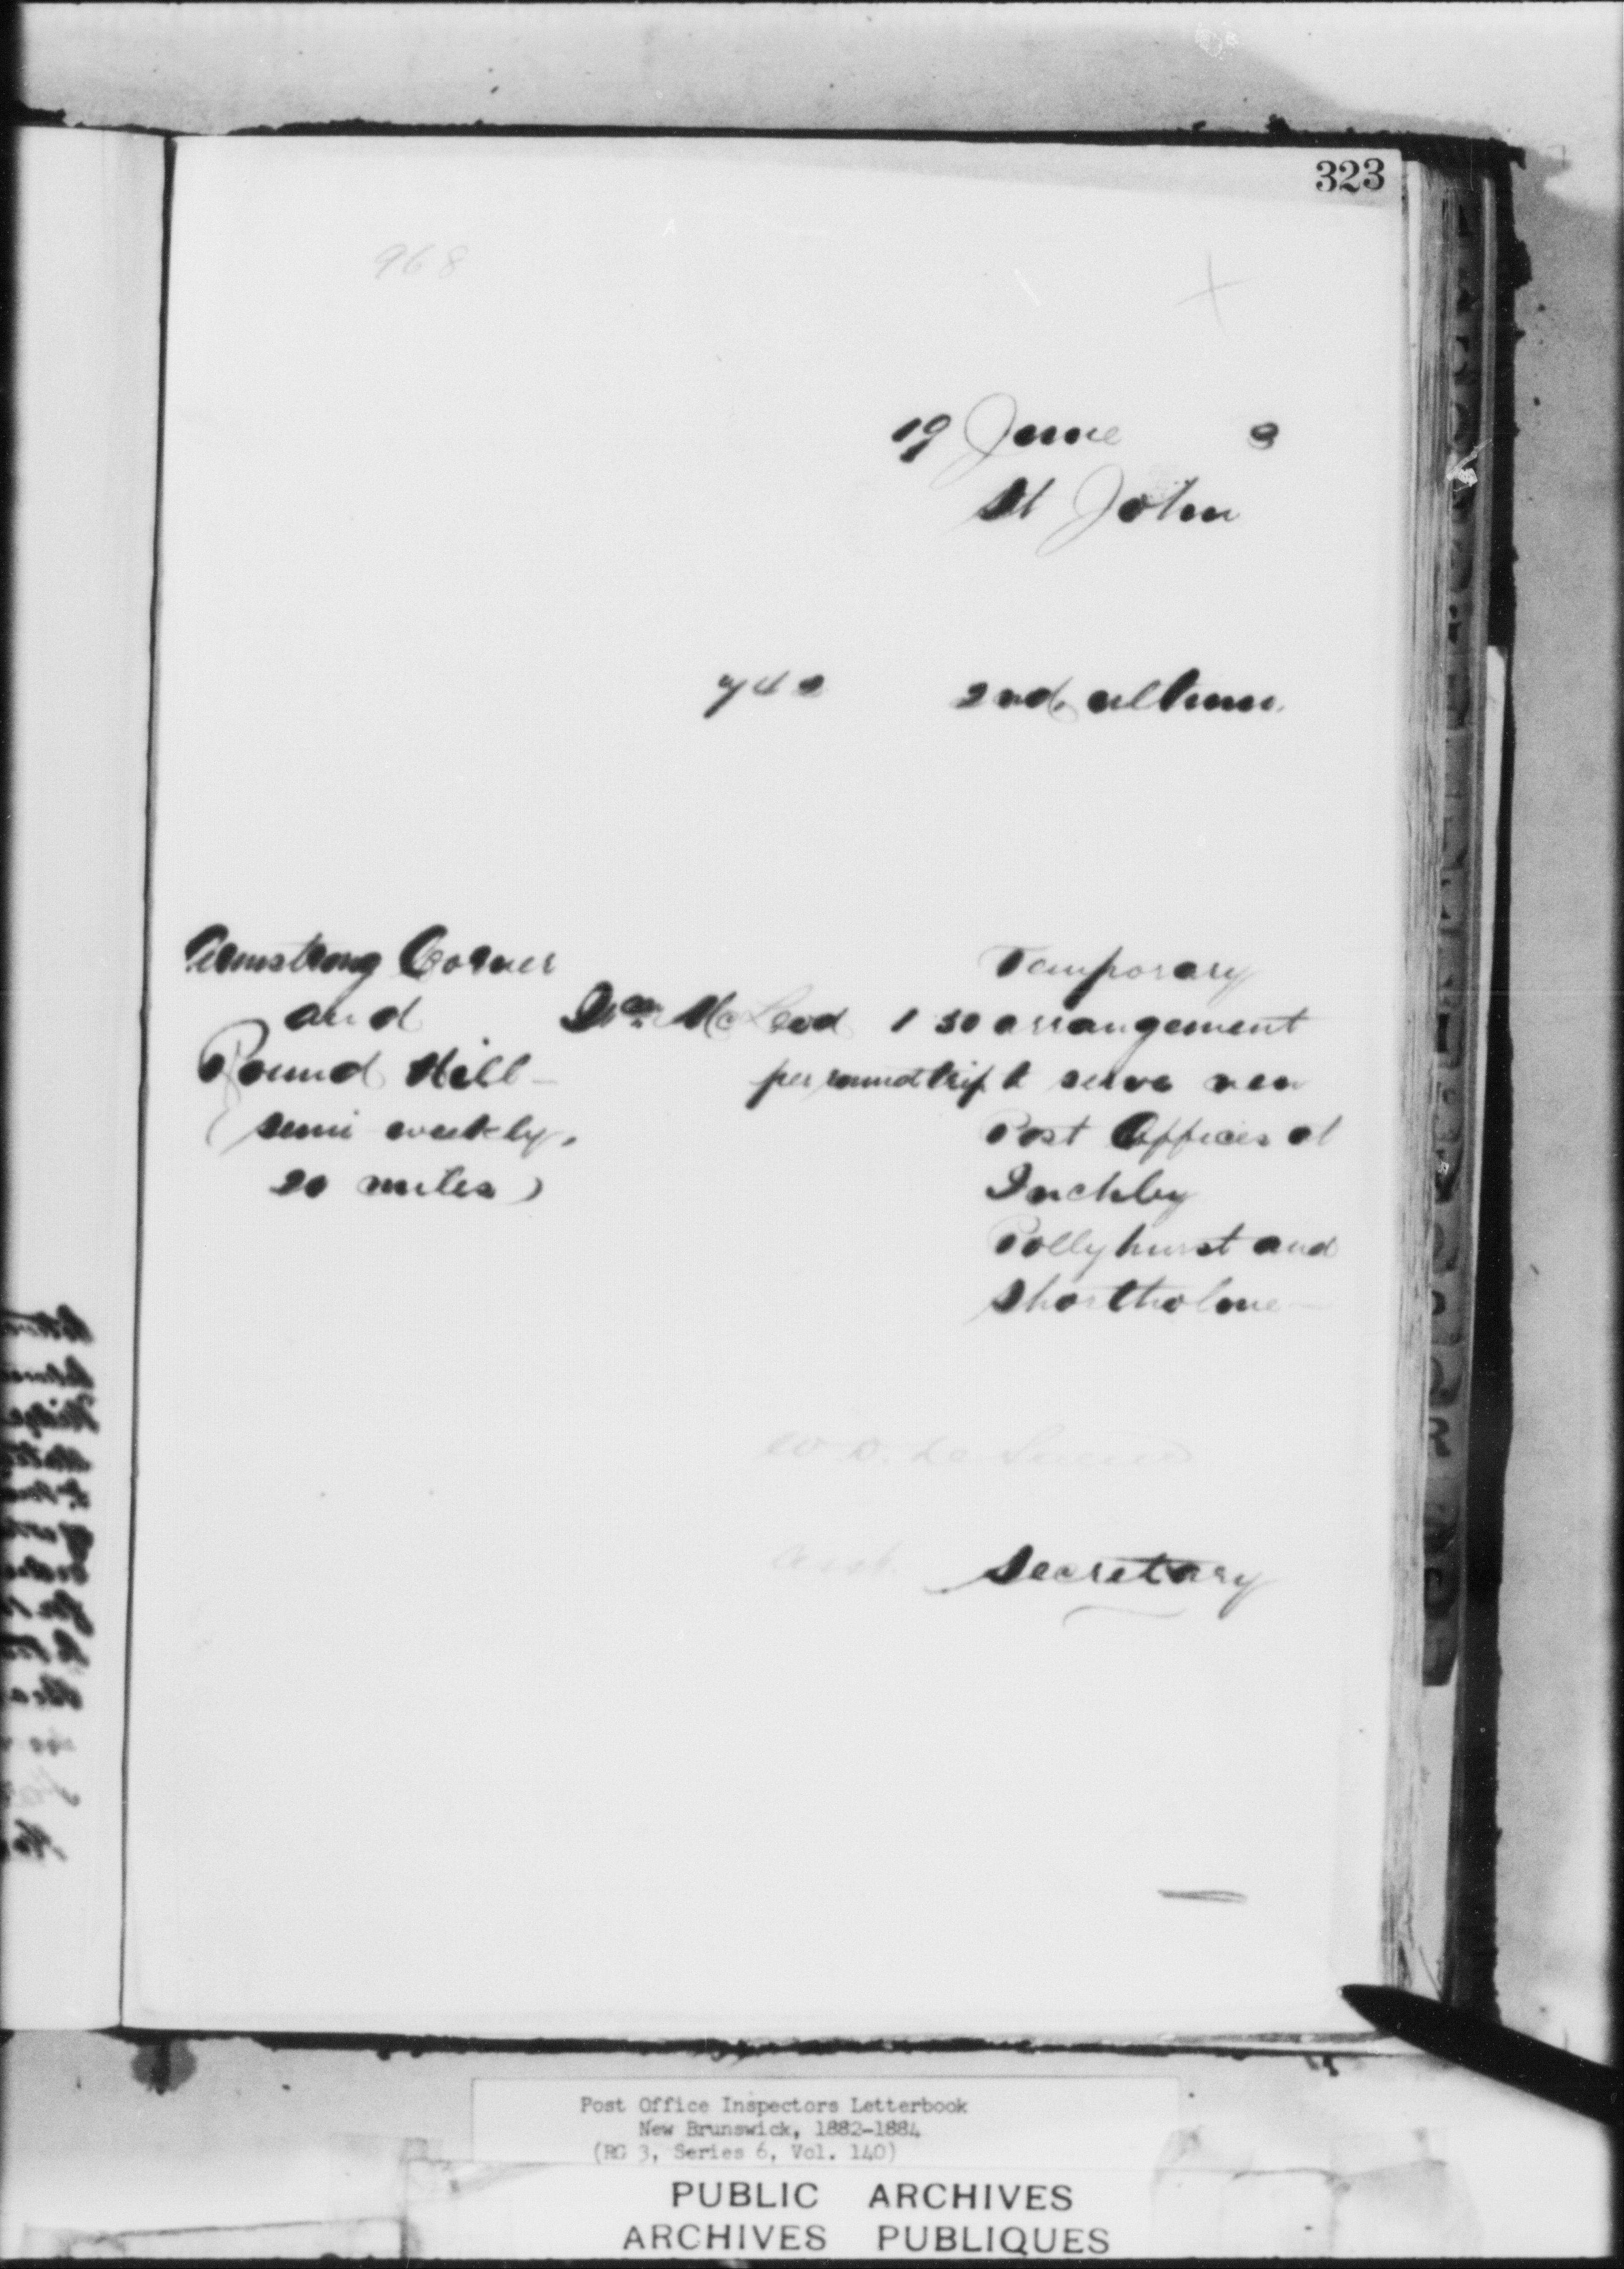 323
968
19 June 3
St John
742 2nd ultimo.
Armstrong Corner Temporary
and Wm McLeod 1 50 arrangement
Round Hill per round trip to serve new
(semi weekly, Post Offices at
20 miles) Inchby
Pollyhurst and
Shortholme
Asst. Secretary
Post Office Inspectors Letterbook
New Brunswick, 1882-1884
(RG 3, Series 6, Vol. 140)
PUBLIC ARCHIVES
ARCHIVES PUBLIQUES